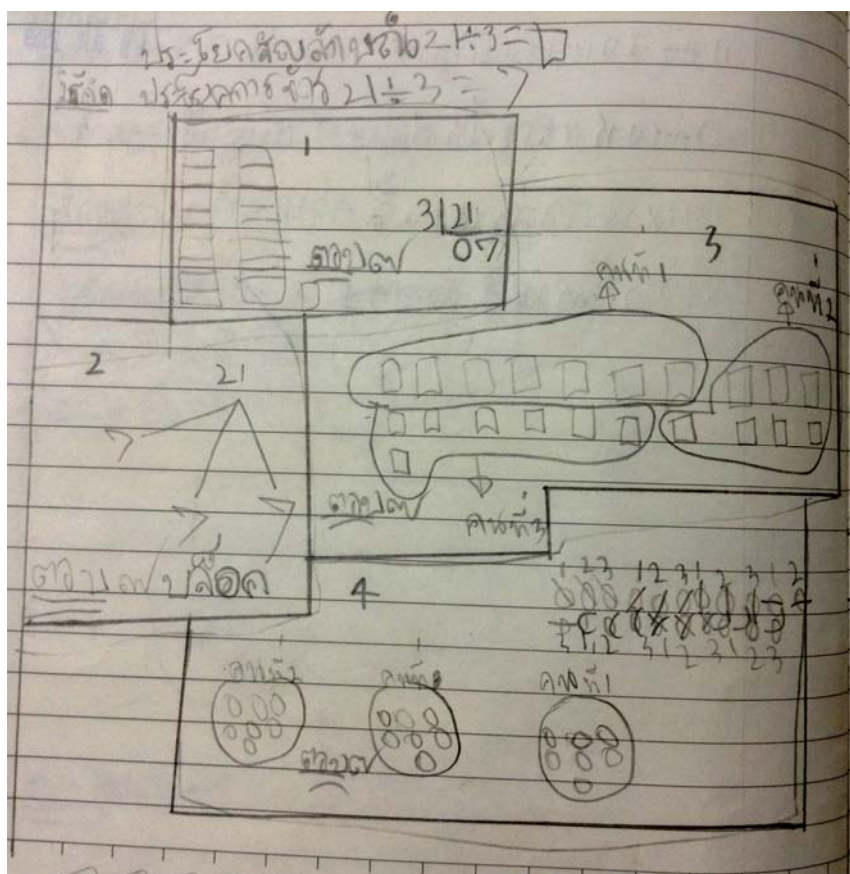 ประโยคสัญลักษณ์ 21÷3=□
วิธีคิด ประโยคการหาร 21÷3=7
1
3|21
07
ตอบ ๗
3
คนที่1
คนที่2
ตอบ ๗
คนที่3
2
21
7
7 7
ตอบ ๗ บล็อค
4
1 2 3 1 2 3 1 2 3 1 2
3 1 2 3 1 2 3 1 2 3
คนที่2 คนที่3 คนที่1
ตอบ ๗